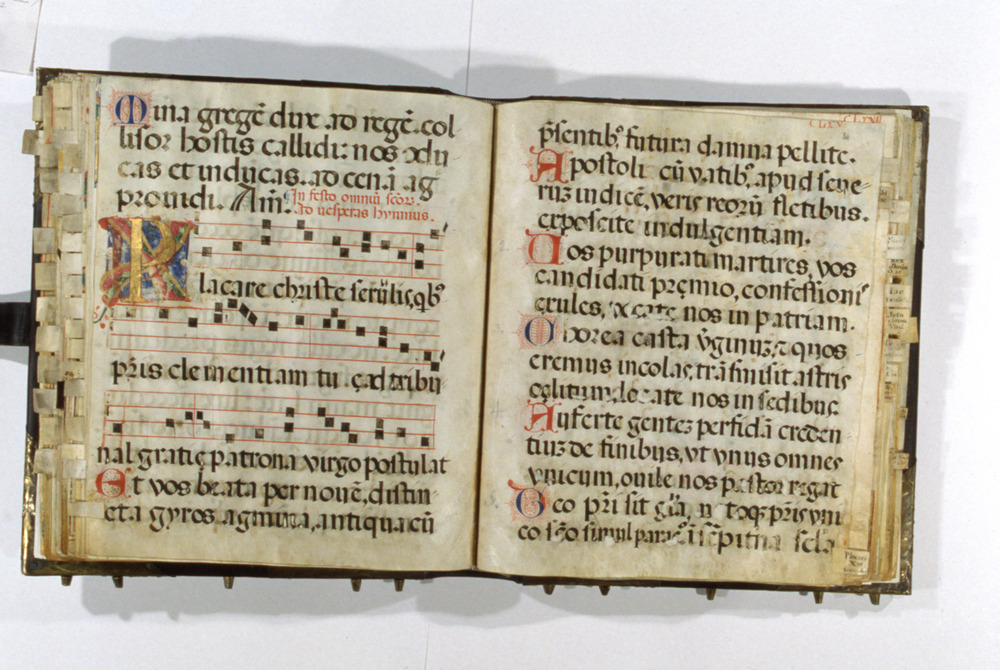 Mina gregē dire ad regē. col
lisor hostis callidi: nos adu
cas et inducas. ad cenā ag
prouidi. Am̄.
In festo omniū scōꝝ.
ad uesperas hymnus.
Placare christe seruulis, qb᷒
pr̄is clementiam tuę ad tribu
nal gratię patrona virgo postulat
Et vos beata per nouē, distin
cta gyros agmina, antiqua cū
CLXVII
p̄sentib᷒ futura damna pellite.
Apostoli cū vatib᷒, apud seue-
ruꝫ iudicē, veris reorū fletibus.
exposcite indulgentiam.
Uos purpurati martires, vos
candidati pręmio, confessioni᷒
exules, vocate nos in patriam.
Chorea casta v̄ginuꝫ, ⁊ quos
eremus incolas, trāsmisit astris
cęlitum, locate nos in sedibus
Auferte gentez perfidā creden
tiuꝫ de finibus, vt vnus omnes
vnicum, ouile nos pastor regat
Deo pr̄i sit gl̄ia, natoqꝫ pr̄is vni
co sc̄o simul paraclito ī sēpiterna sęcla